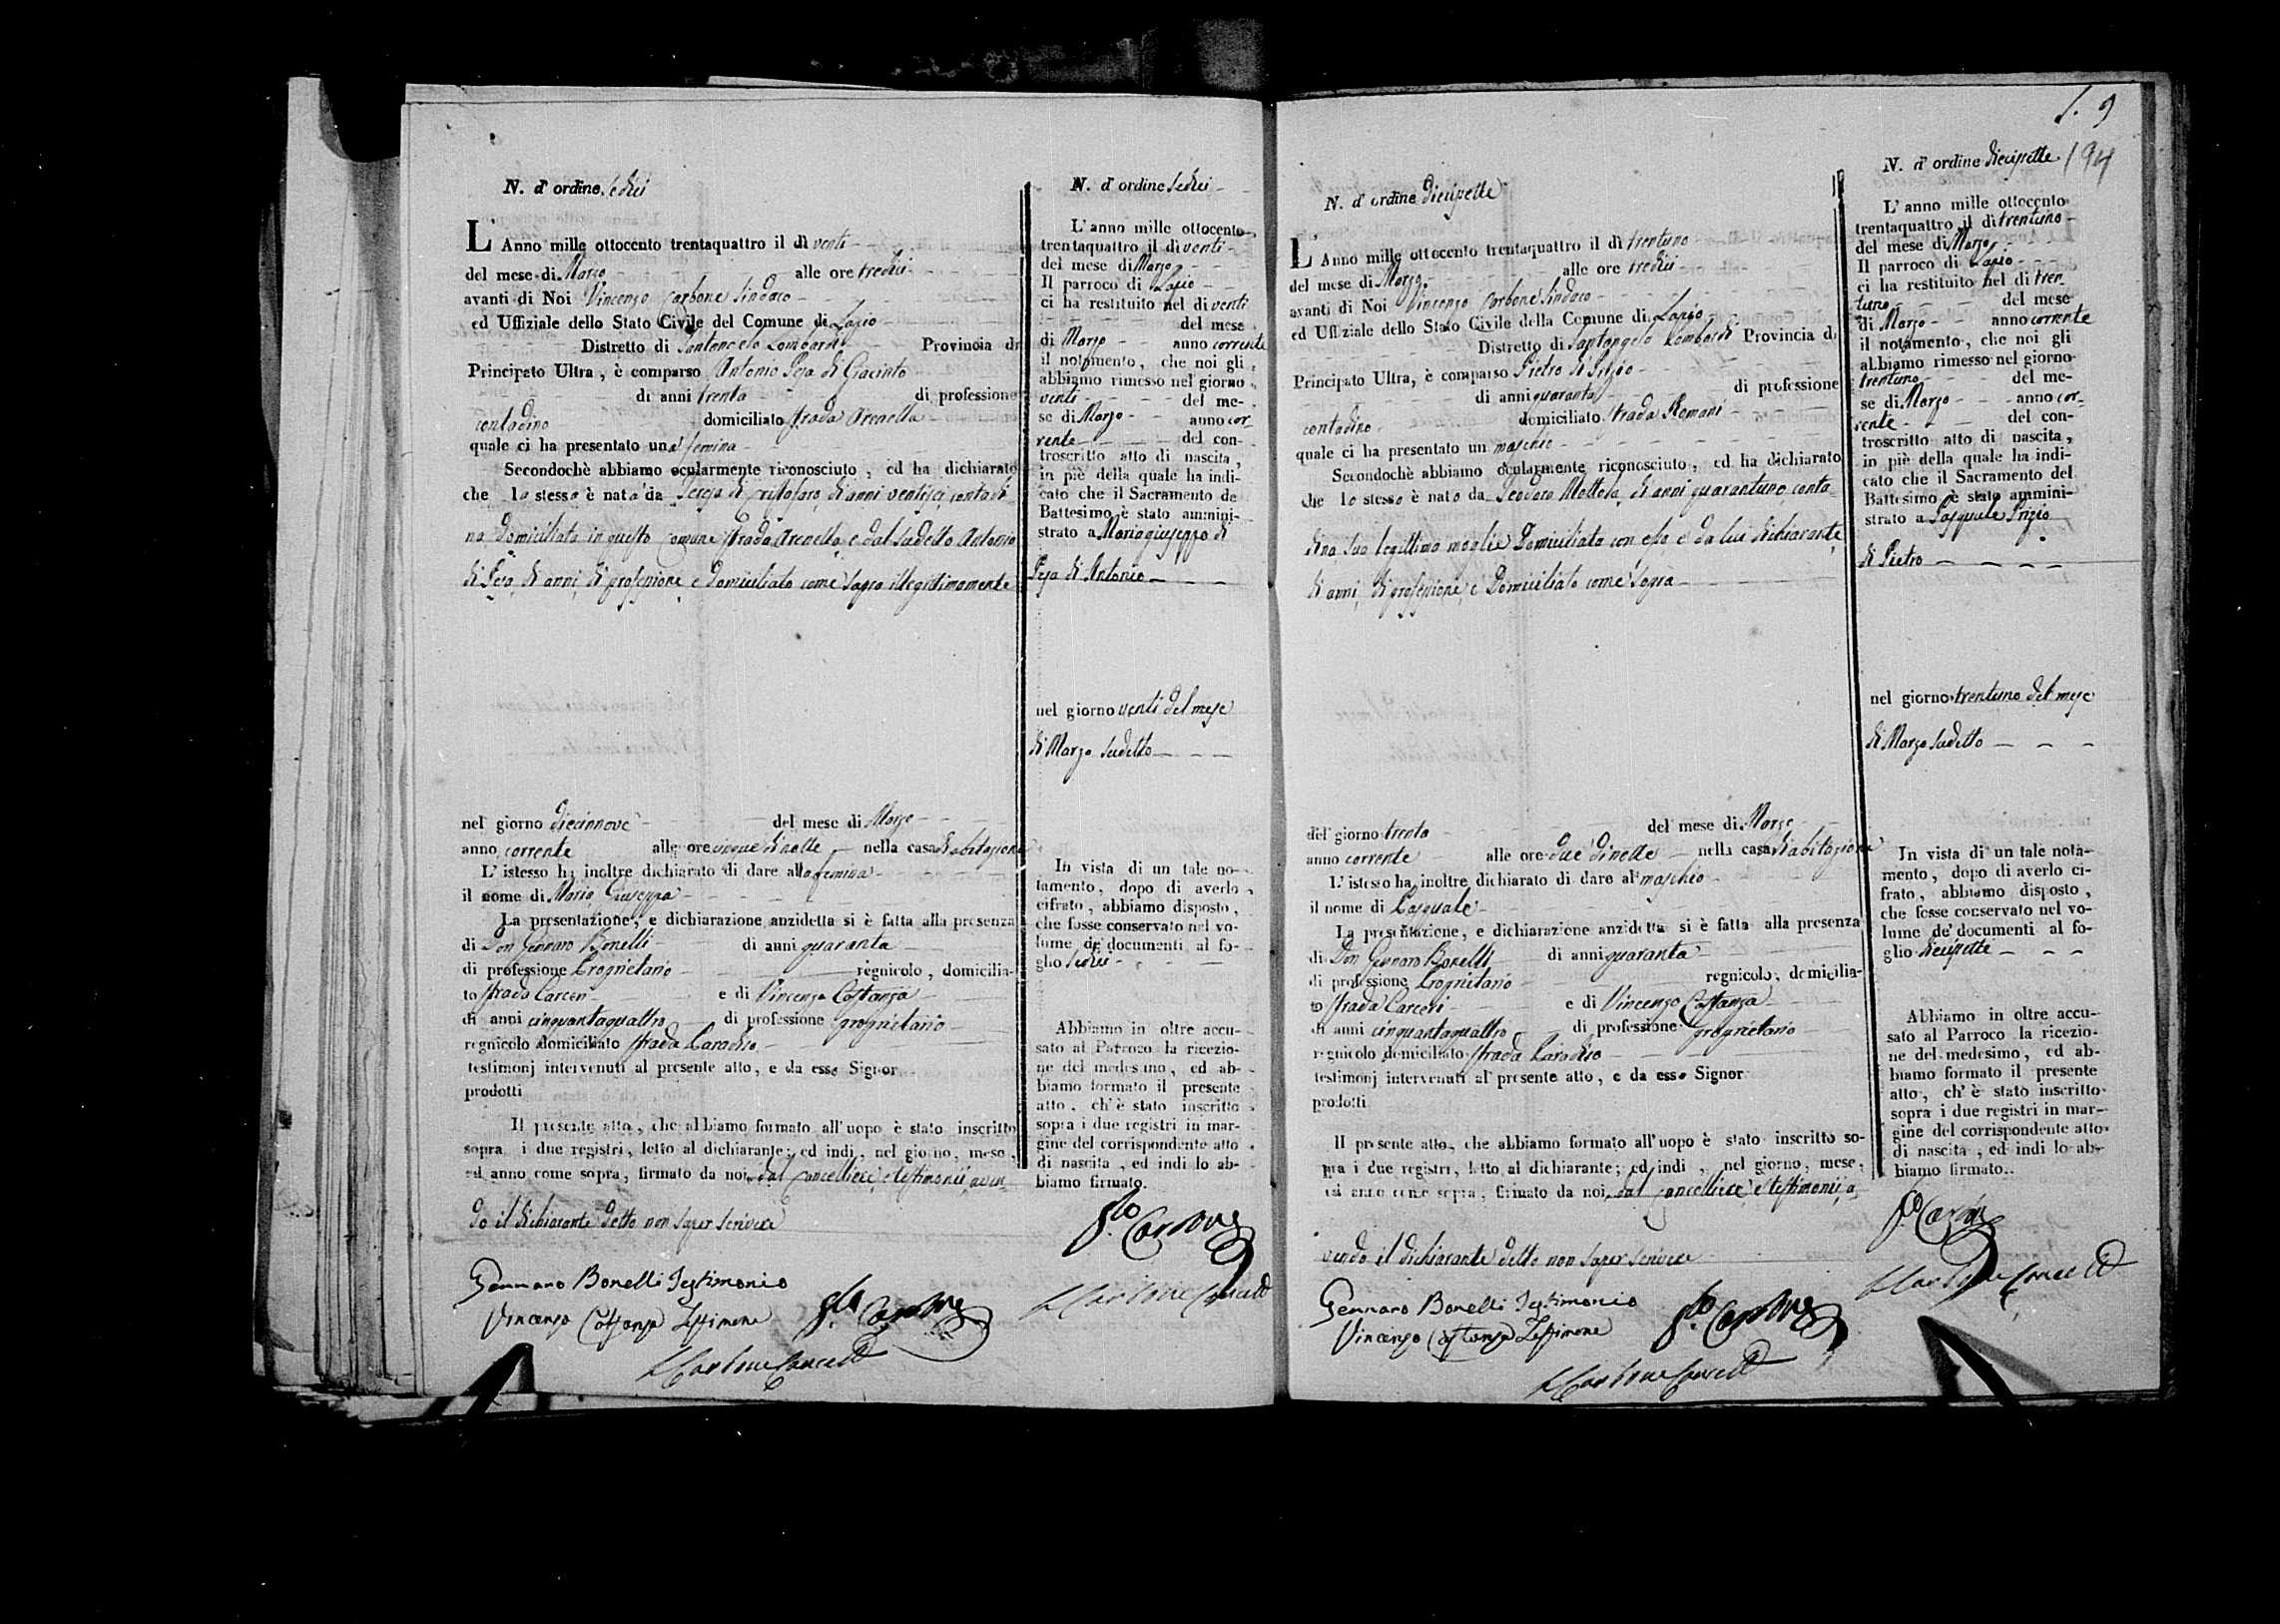 N. d' ordine Sedici
L' Anno mille ottocento trentaquattro il dì venti
del mese di Marzo alle ore tredici
avanti di Noi Vincenzo Carbone Sindaco
ed Uffiziale dello Stato Civile del Comune di Lapio
Distretto di Santangelo Lombardi Provincia di
Principato Ultra, è comparso Antonio Pesa di Giacinto
di anni trenta di professione
contadino domiciliato strada Arenella
quale ci ha presentato una femina
Secondochè abbiamo ocularmente riconosciuto, ed ha dichiarato
che lo stesso è nata da Teresa di Cristofaro, di anni ventisei, contadi-
na, domiciliata in questo Comune strada Arenella, e dal sudetto Antonio
di Pesa, di anni, di professione, e domiciliato come sopra illegittimamente
nel giorno diecinnove del mese di Marzo
anno corrente alle ore cinque di notte nella casa di abitazione
L' istesso ha inoltre dichiarato di dare alla femina
il nome di Maria Giuseppa
La presentazione, e dichiarazione anzidetta si è fatta alla presenza
di Don Gennaro Bonelli di anni quaranta
di professione Proprietario regnicolo, domicilia-
to strada Carceri e di Vincenzo Costanza
di anni cinquantaquattro di professione proprietario
regnicolo domiciliato strada Paradiso
testimonj intervenuti al presente atto, e da esso Signor
prodotti
Il presente atto, che abbiamo formato all' uopo è stato inscritto
sopra i due registri, letto al dichiarante; ed indi, nel giorno, mese,
ed anno come sopra, firmato da noi, dal Cancelliere, e testimonii, aven-
do il dichiarante detto non saper scrivere
Gennaro Bonelli Testimonio
Vincenzo Costanza Testimone Carbone
Carbone Cancell
N. d' ordine Sedici
L' anno mille ottocento
trentaquattro il dì venti
del mese di Marzo
Il parroco di Lapio
ci ha restituito nel dì venti
del mese
di Marzo anno corrente
il notamento, che noi gli
abbiamo rimesso nel giorno
venti del me-
se di Marzo anno cor
rente del con-
troscritto atto di nascita,
in piè della quale ha indi-
cato che il Sacramento de
Battesimo è stato ammini-
strato a Mariagiuseppa di
Pesa di Antonio
nel giorno venti del mese
di Marzo sudetto
In vista di un tale no-
tamento, dopo di averlo
cifrato, abbiamo disposto,
che fosse conservato nel vo-
lume de' documenti al fo-
glio sedici
Abbiamo in oltre accu-
sato al Parroco la ricezio-
ne del medesimo, ed ab-
biamo formato il presente
atto, ch' è stato inscritto
sopra i due registri in mar-
gine del corrispondente atto
di nascita, ed indi lo ab-
biamo firmato.
Carbone
Carbone Cancell
N. d' ordine diecisette
L' Anno mille ottocento trentaquattro il dì trentuno
del mese di Marzo alle ore tredici
avanti di Noi Vincenzo Carbone Sindaco
ed Uffiziale dello Stato Civile della Comune di Lapio
Distretto di Santangelo Lombardi Provincia di
Principato Ultra, è comparso Pietro di Prizio
di anni quaranta di professione
contadino domiciliato strada Romani
quale ci ha presentato un maschio
Secondochè abbiamo ocularmente riconosciuto, ed ha dichiarato
che lo stesso è nato da Teodora Mottola, di anni quarantuno, conta-
dina sua legittima moglie domiciliata con esso e da lui dichiarante,
di anni, di professione, e domiciliato come sopra
del giorno trenta del mese di Marzo
anno corrente alle ore due di notte nella casa di abitazione
L' istesso ha inoltre dichiarato di dare al maschio
il nome di Pasquale
La presentazione, e dichiarazione anzidetta si è fatta alla presenza
di Don Gennaro Bonelli di anni quaranta
di professione Proprietario regnicolo, domicilia-
to strada Carceri e di Vincenzo Costanza
di anni cinquantaquattro di professione proprietario
regnicolo domiciliato strada Paradiso
testimonj intervenuti al presente atto, e da esso Signor
prodotti
Il presente atto, che abbiamo formato all' uopo è stato inscritto so-
pra i due registri, letto al dichiarante; ed indi, nel giorno, mese,
ed anno come sopra, firmato da noi, dal Cancelliere, e testimonii, a-
vendo il dichiarante detto non saper scrivere
Gennaro Bonelli Testimonio
Vincenzo Costanza Testimone Carbone
Carbone Cancell
N. d' ordine diecisette 194
L' anno mille ottocento
trentaquattro il dì trentuno
del mese di Marzo
Il parroco di Lapio
ci ha restituito nel dì tren
tuno del mese
di Marzo anno corrente
il notamento, che noi gli
abbiamo rimesso nel giorno
trentuno del me-
se di Marzo anno cor-
rente del con-
troscritto atto di nascita,
in piè della quale ha indi-
cato che il Sacramento del
Battesimo è stato ammini-
strato a Pasquale Prizio
di Pietro
nel giorno trentuno del mese
di Marzo sudetto
In vista di un tale nota-
mento, dopo di averlo ci-
frato, abbiamo disposto,
che fosse conservato nel vo-
lume de' documenti al fo-
glio diecisette
Abbiamo in oltre accu-
sato al Parroco la ricezio-
ne del medesimo, ed ab-
biamo formato il presente
atto, ch' è stato inscritto
sopra i due registri in mar-
gine del corrispondente atto
di nascita, ed indi lo ab-
biamo firmato.
Carbone
Carbone Cancell